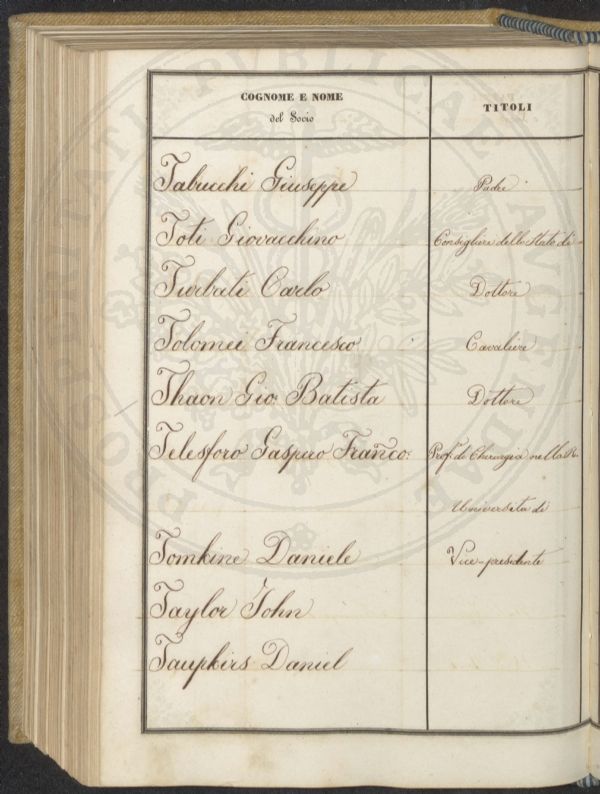 COGNOME E NOME
del Socio
TITOLI
Tabucchi Giuseppe Padre
Toti Giovacchino Consigliere dello Stato di
Turbati Carlo Dottore
Tolomei Francesco Cavaliere
Thaon Gio: Batista Dottore
Telesforo Gaspero Franco: Prof. di Chirurgia nella R.
Università di
Tomkine Daniele Vice-presidente
Taylor John
Taupkirs Daniel